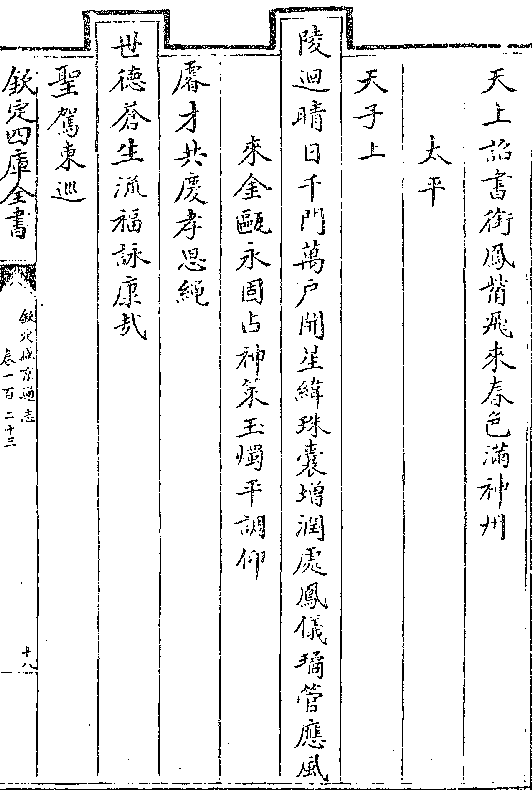 天上詔書銜鳳背飛來春色滿神州
太平
天子上
陵迴晴日千門萬户開星緯珠囊增潤處鳳儀璚管應風
來金甌永固占神策玉燭平調仰
睿才共慶孝思純
世德蒼生流福詠康哉
聖駕東巡
欽定四庫全書
欽定盛京通志
卷一百二十三
十八